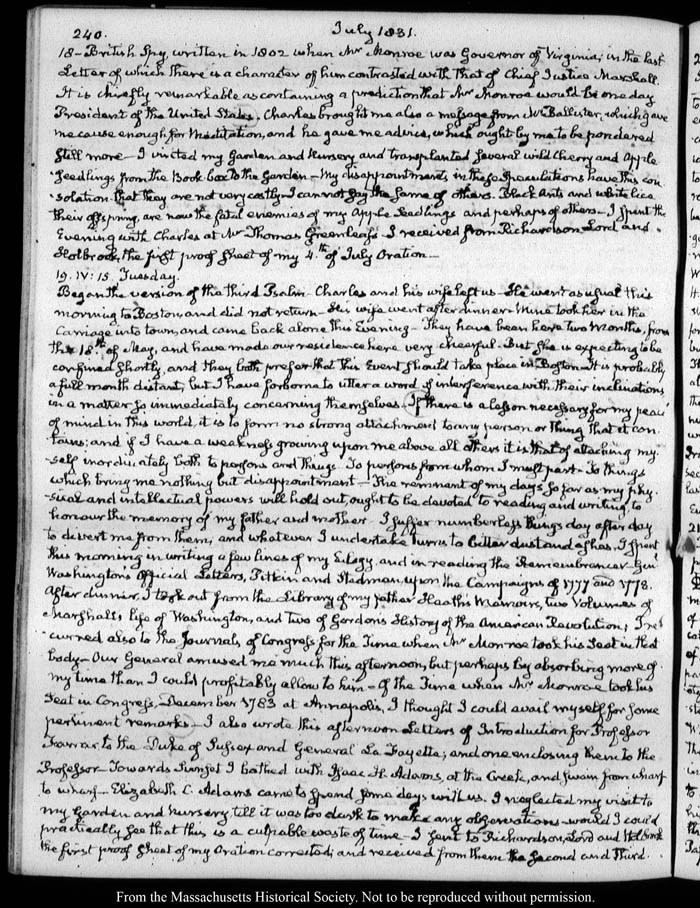 240.
July 1831.
18 - British Spy written in 1802 when Mr Monroe was Governor of Virginia; in the last
Letter of which there is a character of him contrasted with that of Chief Justice Marshall.
It is chiefly remarkable as containing a prediction that Mr Monroe would be one day
President of the United States. Charles brought me also a message from Mr Ballister, which gave
me cause enough for Meditation, and he gave me advice, which ought by me to be pondered
still more - I visited my Garden and Nursery and transplanted several wild Cherry and Apple
seedlings from the Book-box to the Garden - My disappointments in these Inoculations have this con-
-solation that they are not very costly I cannot say the same of others. Black Ants and white lice
their offspring, are now the fatal enemies of my Apple Seedlings and perhaps of others - I spent the
Evening with Charles at Mr Thomas Greenleaf's - I received from Richardson, Lord and
Holbrook, the first proof sheet of my 4.th of July Oration -
19. IV:15. Tuesday.
Began the version of the third Psalm - Charles and his wife left us - He went as usual this
morning to Boston, and did not return - His wife went after dinner - Mine took her in the
Carriage into town, and came back alone this Evening - They have been here two Months, from
the 18.th of May, and have made our residence here very cheerful - But she is expecting to be
confined shortly, and they both prefer that this Event should take place in Boston - It is probably
a full month distant, but I have forborne to utter a word of interference with their inclinations
in a matter so immediately concerning themselves - If there is a lesson necessary for my peace
of mind in this world, it is to form no strong attachment to any person or thing that it con-
tains; and if I have a weakness growing upon me above all others it is that of attaching my-
-self inordinately both to persons and things - To persons from whom I must part - To things
which bring me nothing but disappointment - The remnant of my days so far as my phy-
-sical and intellectual powers will hold out, ought to be devoted to reading and writing, to
honour the memory of my father and mother - I suffer numberless things day after day
to divert me from them, and whatever I undertake turns to bitter dust and ashes. I spent
this morning in writing a few lines of my Eulogy, and in reading the Remembrancer Genl
Washington's Official Letters, Pitkin and Stedman, upon the Campaigns of 1777 and 1778.
After dinner, I took out from the Library of my father Heath's Memoirs, two Volumes of
Marshall's life of Washington, and two of Gordon's History of the American Revolution; I re-
-curred also to the Journals of Congress for the Time when Mr Monroe took his Seat in that
body - Our General amused me much this afternoon, but perhaps by absorbing more of
my time than I could profitably allow to him - Of the Time when Mr Monroe took his
Seat in Congress, December 1783 at Annapolis, I thought I could avail myself for some
pertinent remarks - I also wrote this afternoon Letters of Introduction for Professor
Farrar to the Duke of Sussex and General La Fayette; and one enclosing them to the
Professor - Towards Sunset I bathed with Isaac H. Adams, at the Creek, and swam from wharf
to wharf - Elizabeth C. Adams came to spend some days with us. I neglected my visit to
my Garden and Nursery, till it was too dark to make any observations - would I could
practically see that this is a culpable waste of time - I sent to Richardson, Lord and Holbrook
the first proof sheet of my Oration corrected; and received from them the second and third.
From the Massachusetts Historical Society. Not to be reproduced without permission.